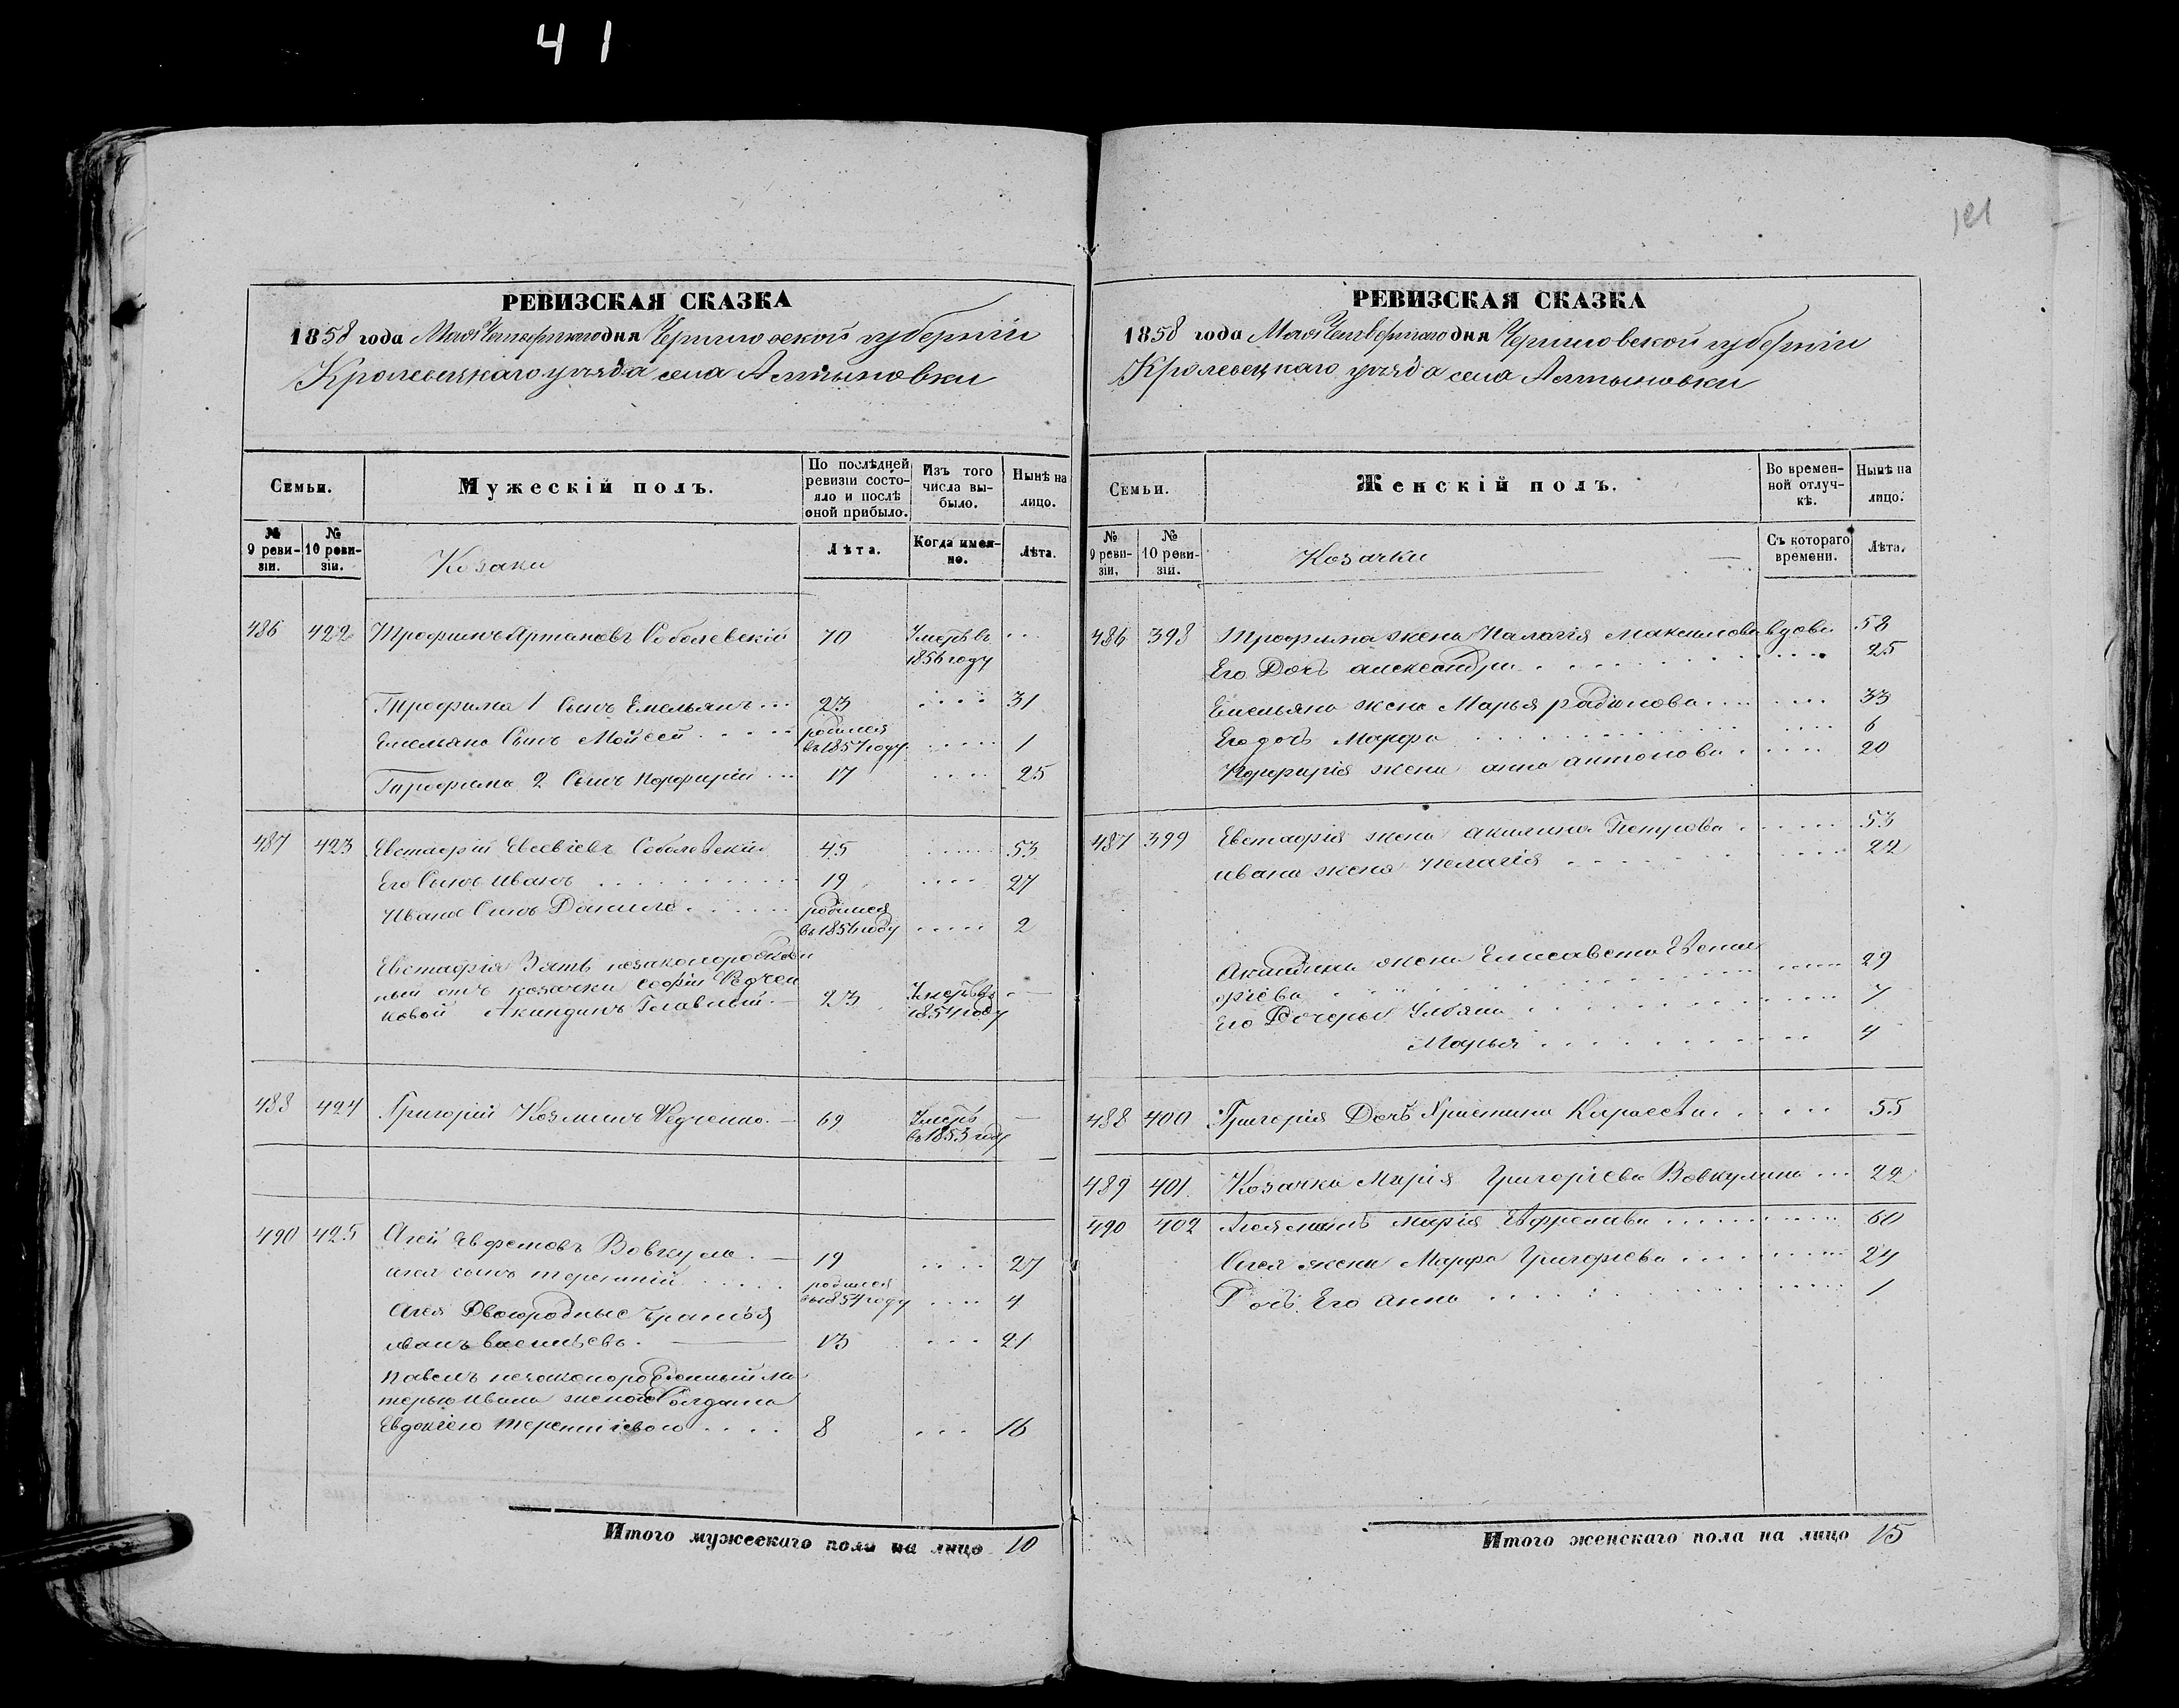 41
121
РЕВИЗСКАЯ СКАЗКА
1858 года Мая Четвертаго дня Черниговской губерніи
Кролевецкаго уезда села Алтыновки
Семьи.
Мужескій полъ.
По послѣдней ревизіи состояло и послѣ оной прибыло.
Изъ того числа выбыло.
Нынѣ на лицо.
№ 9 ревизіи.
№ 10 ревизіи.
Козаки
Лѣта.
Когда именно.
Лѣта.
486 422 Трофимъ Артамовъ Соболевскій 70 Умеръ въ
1856 году
Трофима 1 Сынъ Емельянъ 23 31
Емельяна Сынъ Мойсей родился
въ 1857 году 1
Трофима 2 Сынъ Порфирій 17 25
487 423 Евстафій Евсевіевъ Соболевскій 45 53
Его Сынъ Иванъ 19 27
Ивана Сынъ Данило родился
въ 1856 году 2
Евстафія Зять незаконорожден
ный отъ козачки Софіи Федчен
ковой Акиндинъ 23 Умеръ въ
1854 году
488 424 Григорій Козминъ Федченко 69 Умеръ
въ 1853 году
490 425 Агей Евфемовъ Вовкула 19 27
Агея сынъ Терентій родился
въ 1854 году 4
Агея Двоюродные братья
Иванъ Васильевъ 13 21
Павелъ незаконорожденный Ма
терью Ивана женою Солдата
Евдокіею Терентіевою 8 16
Итого мужескаго пола на лицо 10
РЕВИЗСКАЯ СКАЗКА
1858 года Мая Четвертаго дня Черниговской губерніи
Кролевецкаго уезда села Алтыновки
Семьи.
Женскій полъ.
Во временной отлучкѣ.
Нынѣ на лицо.
№ 9 ревизіи,
№ 10 ревизіи.
Козачки
Съ котораго времени.
Лѣта.
486 398 Трофима жена Палагія Максимова вдова 58
Его Дочь Александра 25
Емельяна жена Марья Радіонова 33
Его дочь Марфа 6
Порфирія жена Анна Антонова 20
487 399 Евстафія жена Акилина Петрова 53
Ивана жена Пелагія 22
Акиндина жена Елисавета Евста
фіева 29
Его Дочеры Ульяна 7
Марья 4
488 400 Григорія Дочь Христина 55
489 401 Козачка Марія Григоріева Вовкулина 22
490 402 Агея мать Марія Евфремова 60
Агея жена Марфа Григоріева 24
Дочь Его Анна 1
Итого женскаго пола на лицо 15